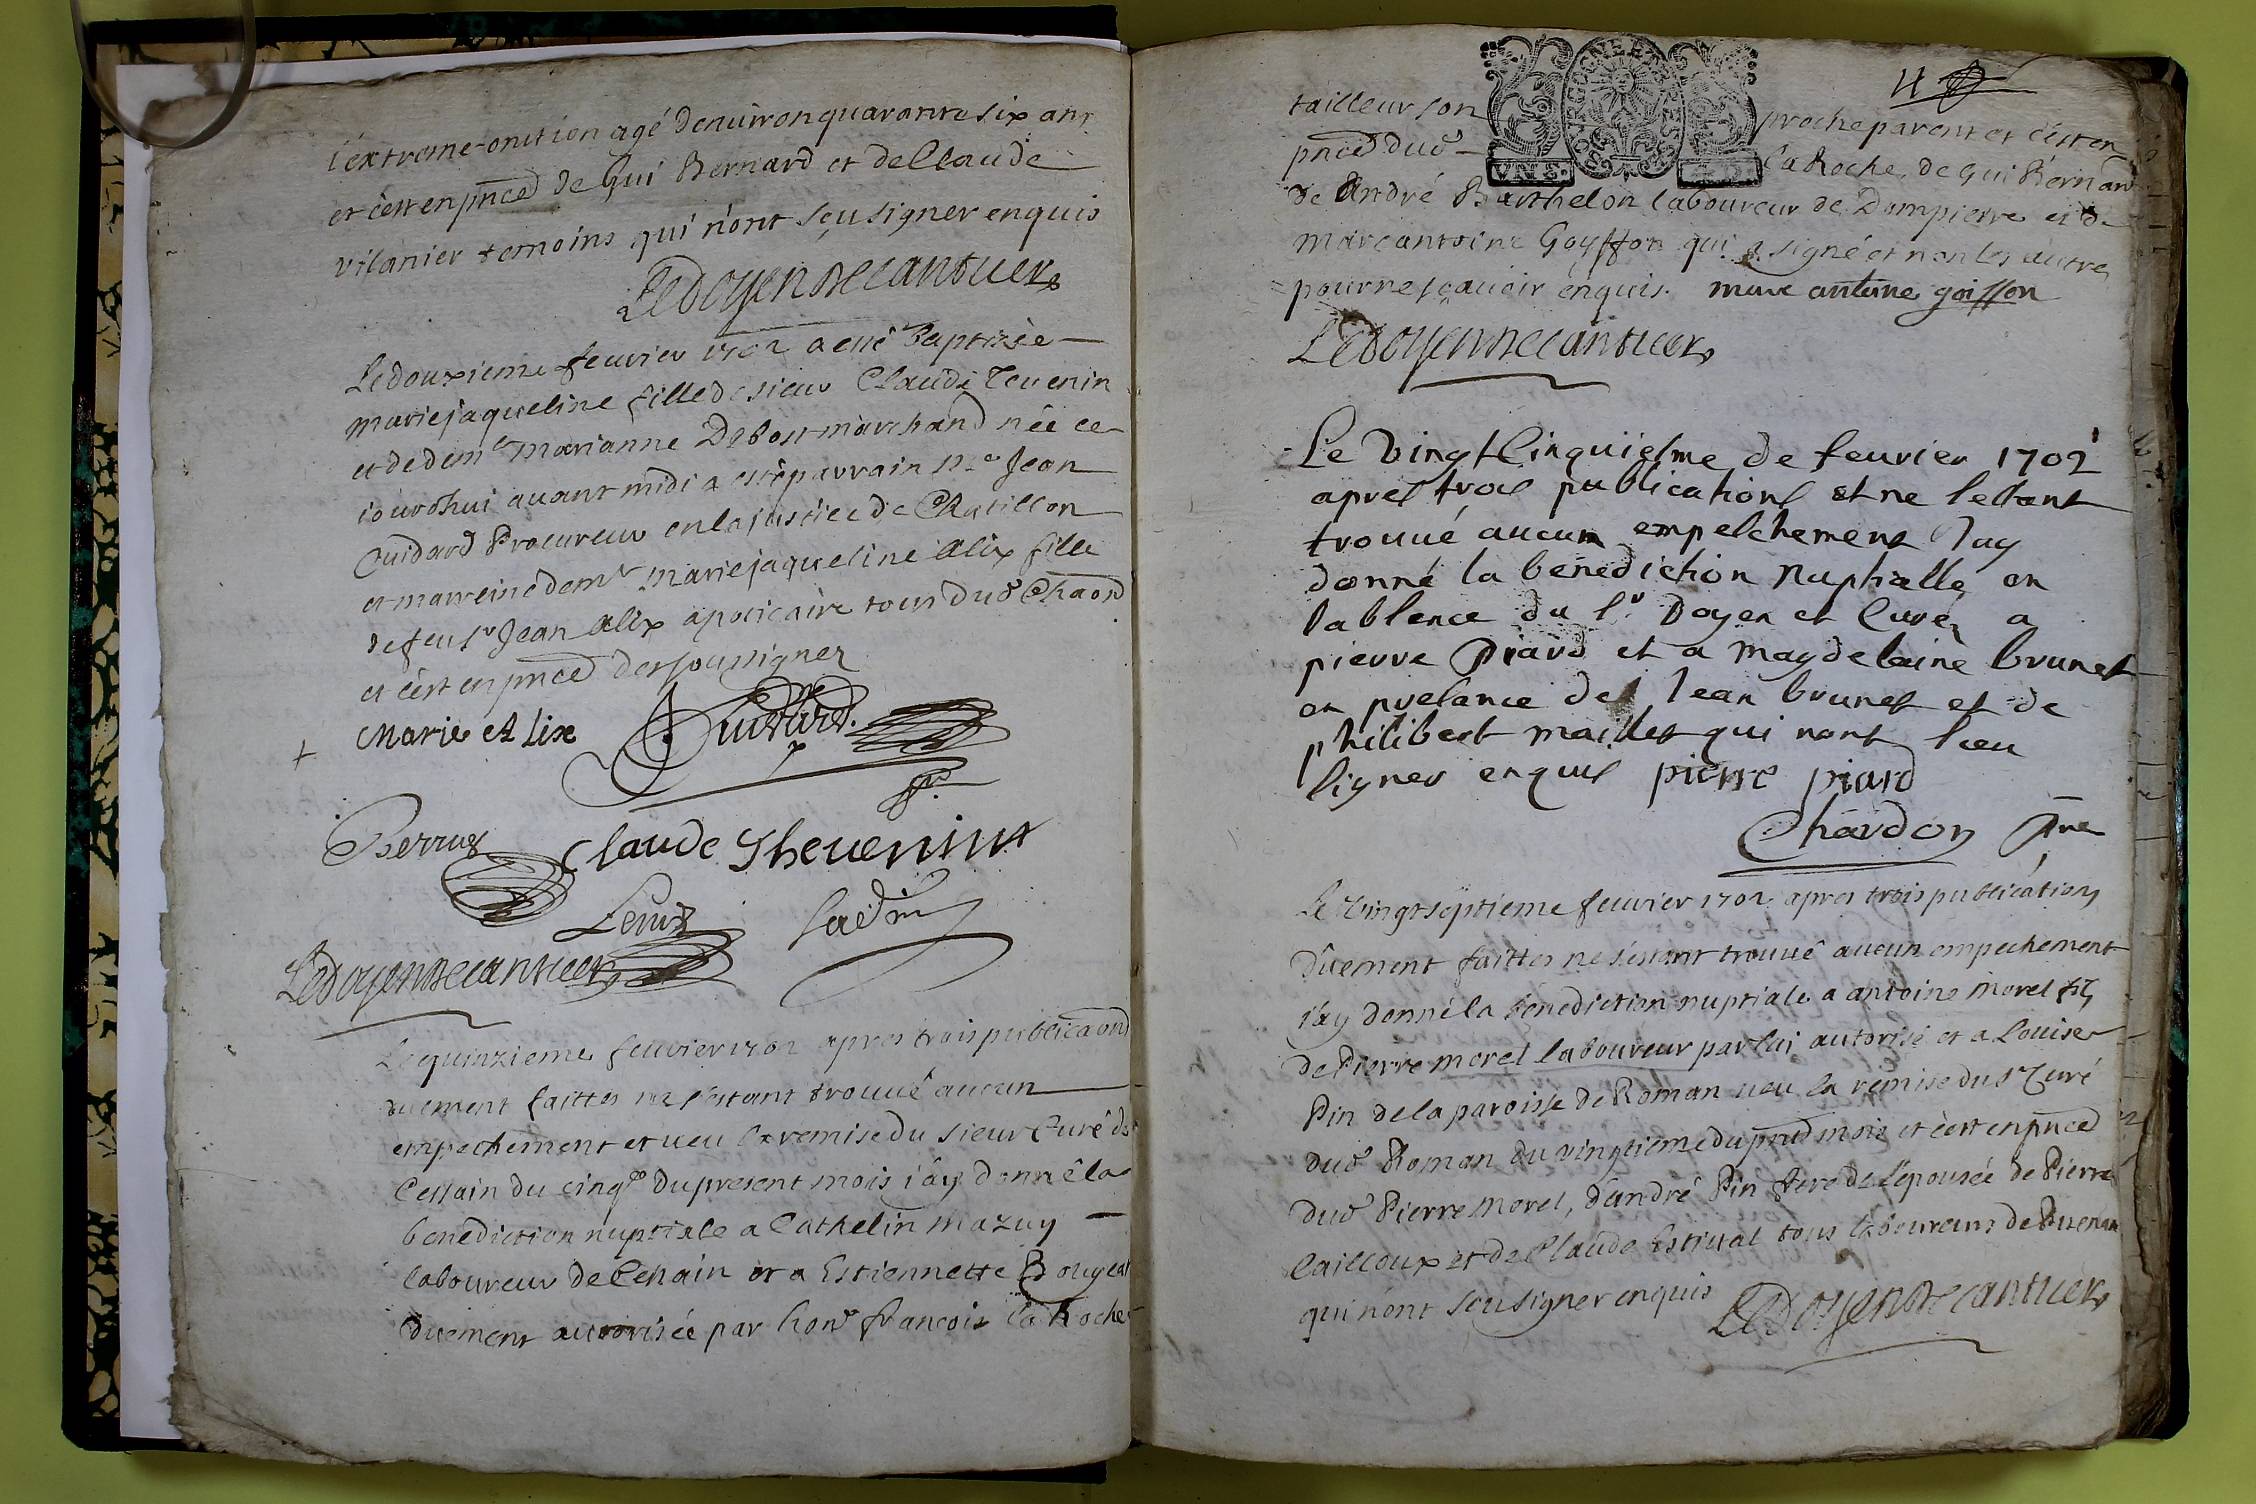 l'extreme-onction agé d'enuiron quarante six ans
et c'est en pnce de Gui Bernard et de Claude
vilanier temoins qui n'ont sçu signer enquis
Ledoyen de cantuer
Le douxieme feuvrier 1702 a esté Baptisée
marie jaqueline fille de sieur Claude Teuenin
et de demle Marianne Debost marchand née ce
iourdhui auant midi a esté parrain Me Jean
Guidard Procureur en la justice de Chatillon
et marreine demle marie jaqueline Alix fille
de feu sr Jean Alix apoticaire tous dud Chaon
et c'est en pnce des soussignez
Marie A Lix
Guidard
Perruz
Claude Theuenint
Ledoyen de cantuer
Le quinzieme feuvrier 1702 apres trois publicaons
duement faittes ne s'estant trouué aucun
empechement et ueu la remise du sieur Curé de
Cessain du cinqe du present mois i'ây donné la
benediction nuptiale a Cathelin mazuy
laboureur de Cessain et a Estiennette Bougeat
duement autorisée par hone francois la Roche
4
tailleur son proche parent et c'est en
pnce dud la Roche, de Gui Bernard
de André Barthelon laboureur de Dompierre et de
marc antoine Goyffon qui a signé et non les autres
pour ne sçauoir enquis. marc antoine goiffon
Ledoyen de cantuer
Le vingt Cinquiesme de feurier 1702
apres trois publications et ne sestant
trouué aucun empeschement Jay
donné la bénédiction nuptialle en
lablence du sr Doyen et Curé a
pierre Piard et a magdelaine brunet
en presance de Jean brunet et de
philibert maillet qui nont sceu
signer enquis pierre piard
Chardon Pre
Le vingt septieme feuvrier 1702 apres trois publications
dûement faittes ne s'estant trouué aucun empechement
i'ây donné la benediction nuptiale a antoine Morel fils
de Pierre morel laboureur par lui autorisé et a Louise
Pin de la paroisse de Roman ueu la remise du sr Curé
dud Roman du vingtieme du pnt mois et c'est en pnce
dud Pierre Morel, d'andré Pin frere de l'épousée de Pierre
Cailloux et de Claude Estiual tous laboureurs de
qui n'ont sçu signer enquis Ledoyen de cantuer